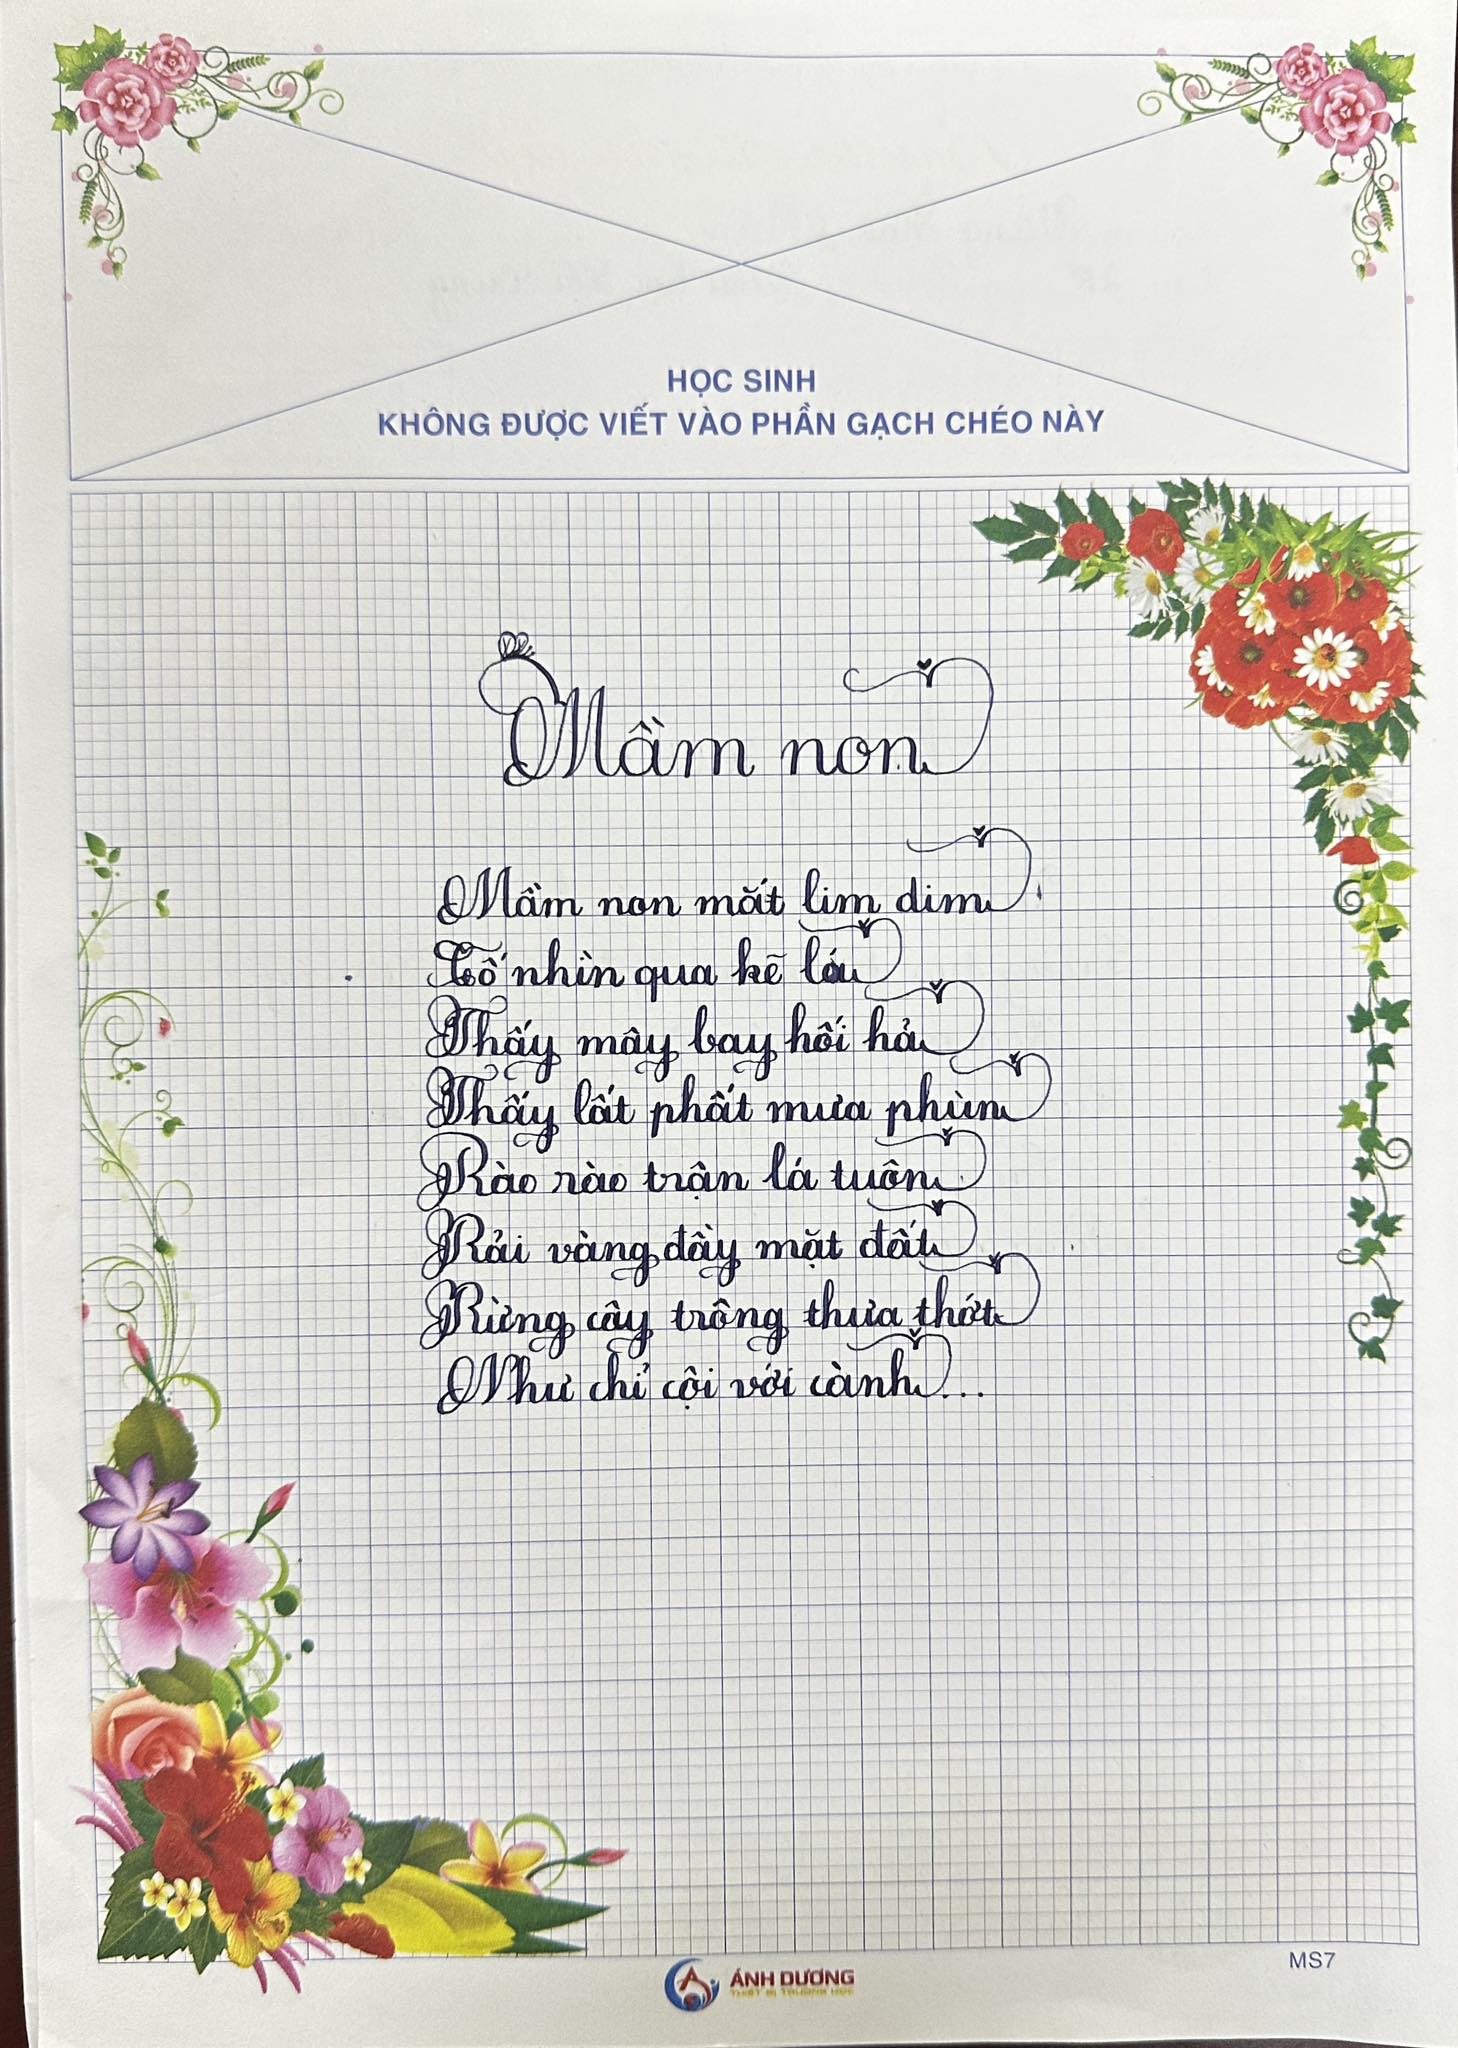 HỌC SINH
KHÔNG ĐƯỢC VIẾT VÀO PHẦN GẠCH CHÉO NÀY
Mầm non
Mầm non mắt lim dim
Cố nhìn qua kẽ lá
Thấy mây bay hối hả
Thấy lất phất mưa phùn
Rào rào trận lá tuôn
Rải vàng đầy mặt đất
Rừng cây trông thưa thớt
Như chỉ cội với cành...
MS7
ÁNH DƯƠNG
THIẾT BỊ TRƯỜNG HỌC